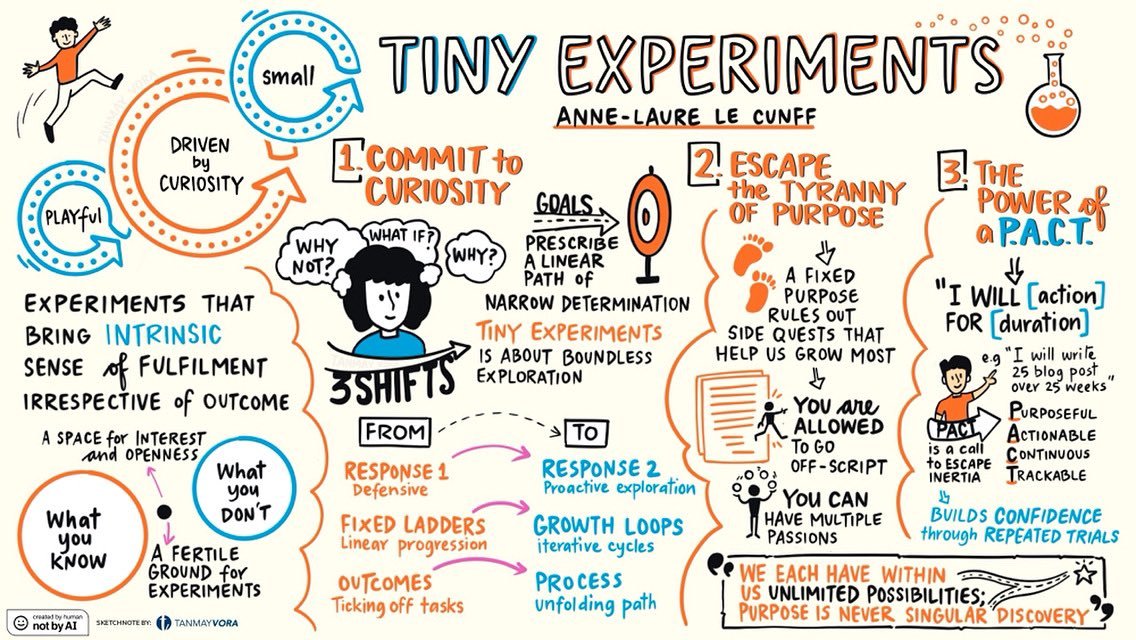 TINY EXPERIMENTS
ANNE-LAURE LE CUNFF
small
DRIVEN
by
CURIOSITY
PLAYful
TANMAY VORA
EXPERIMENTS THAT
BRING INTRINSIC
SENSE of FULFILMENT
IRRESPECTIVE of OUTCOME
A SPACE for INTEREST
and OPENNESS
What
you
DON'T
What
you
KNOW
A FERTILE
GROUND for
EXPERIMENTS
1. COMMIT to
CURIOSITY
WHY
NOT?
WHAT IF?
WHY?
GOALS
PRESCRIBE
A LINEAR
PATH OF
NARROW DETERMINATION
TINY EXPERIMENTS
IS ABOUT BOUNDLESS
EXPLORATION
3 SHIFTS
FROM
TO
RESPONSE 1
Defensive
RESPONSE 2
Proactive exploration
FIXED LADDERS
Linear progression
GROWTH LOOPS
iterative cycles
OUTCOMES
Ticking off tasks
PROCESS
unfolding path
2. ESCAPE
the TYRANNY
OF PURPOSE
A FIXED
PURPOSE
RULES OUT
SIDE QUESTS THAT
HELP US GROW MOST
YOU are
ALLOWED
TO GO
OFF-SCRIPT
YOU CAN
HAVE MULTIPLE
PASSIONS
3. THE
POWER of
a P.A.C.T.
"I WILL [action]
FOR [duration]
e.g "I will write
25 blog post
over 25 weeks"
PACT
is a call
to ESCAPE
INERTIA
PURPOSEFUL
ACTIONABLE
CONTINUOUS
TRACKABLE
BUILDS CONFIDENCE
through REPEATED TRIALS
"WE EACH HAVE WITHIN
US UNLIMITED POSSIBILITIES;
PURPOSE IS NEVER SINGULAR DISCOVERY"
created by human
not by AI
SKETCHNOTE BY: TANMAYVORA